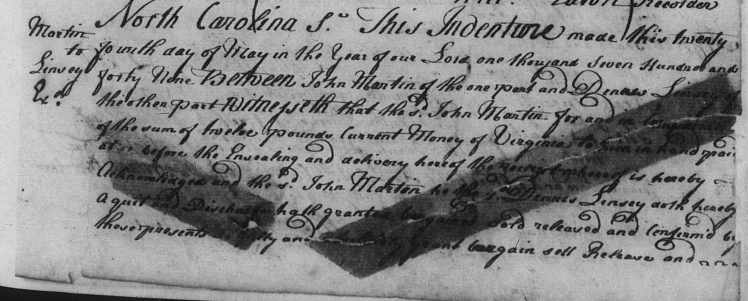 Recorder
North Carolina Ss. This Indenture made this twenty
Martin
to
Linsey
&c.
fourth day of May in the Year of our Lord one thousand Seven Hundred and
forty Nine Between John Martin of the one part and Dennis Linsey
the other part Witnesseth that the sd. John Martin for and in
of the sum of twelve pounds Current Money of Virginia to him in hand paid
at or before the Ensealing and delivery hereof the receipt whereof is hereby
Acknowledged and the sd. John Martin he the sd. Dennis Linsey doth hereby
Aquit Discharge hath granted Sold released and Confirm'd by
these presents and bargain sell Release and